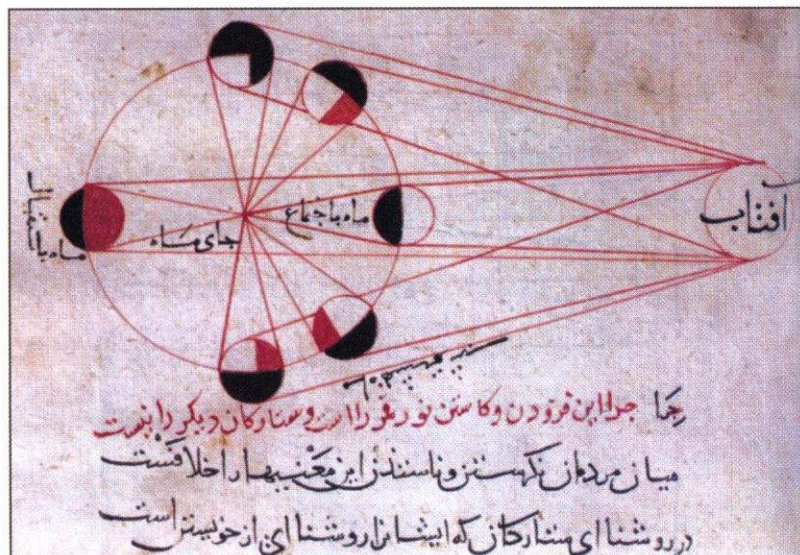 افتاب
ماه باجتماع
جای ماه
ماه باستقبال
چرا این فزودن و کاستن نور قمر را است و ستارکان دیکر را نیست
میان مردمان نکهستن و ناستدن این معنیها را خلافست
در روشنای ستارکان که ایشانرا روشنای از خویشتن است